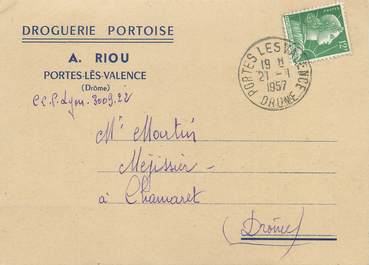 DROGUERIE PORTOISE
A. RIOU
PORTES-LÈS-VALENCE
(Drôme)
C.C.P. Lyon. 3009.22
PORTES LES VALENCE
19 H
21 - 1
1957
DROME
12F
Mr Martin
Méjissier
à Chamaret
(Drôme)